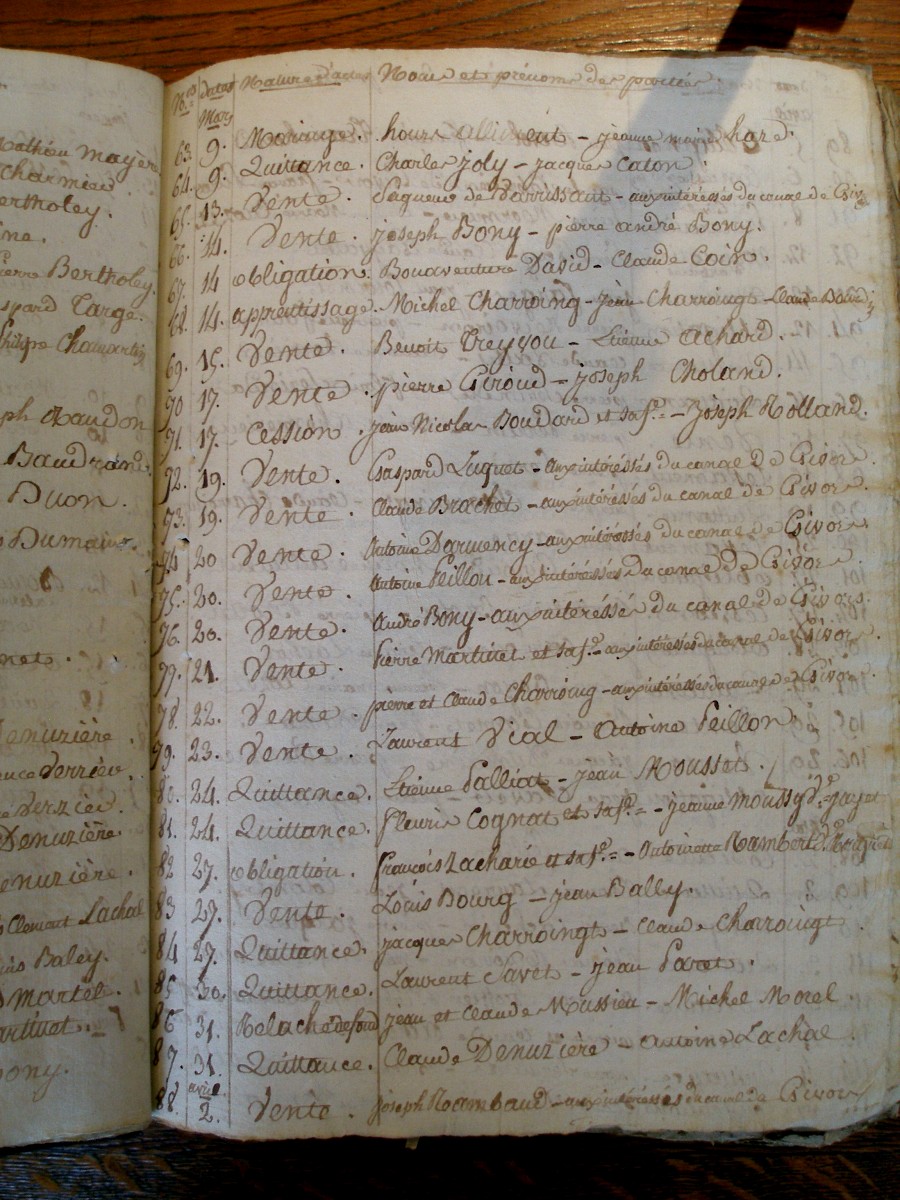 Mathieu mayère
Charmier
Bertholey.
Pierre Bertholey.
Gaspard Targe.
philipe Chamartin
Naudon
Baudrand
Duon.
Dumaine
Denuzière.
Verrier
Verzier.
Denuzière.
Denuzière.
Clement Lachal
Baley.
Martel.
Bony.
N.os dates Nature d'actes Noms et prénoms des parties.
Mars
63. 9. Mariage. Allivent - jeanne marie hore.
64. 9. Quittance. Charles joly - jacques Caton.
65. 13. Vente. de Darissant - aux intéressés du canal de Givors
66. 14. Vente. joseph Bony - pierre andré Bony.
67. 14 obligation. Bonaventure David - Claude Coin.
68. 14. apprentissage. Michel Charroing - jean Charroingt - Claude
69. 15. Vente. Benoit Treyvou - Etienne Achard.
70 17. Vente. pierre Giroud - joseph Choland.
71. 17. Cession. jean Nicolas Boudard et sa f.e - Joseph Rolland.
72. 19. Vente. Gaspard Luquet - aux intéressés du canal de Givors.
73. 19. Vente. Claude Brachet - aux intéréssés du canal de Givors.
74 20 Vente. Antoine Darmency - aux intéréssés du canal de Givors
75. 20. Vente. Antoine Peillon - aux intéréssés du canal de Givors.
76. 20. Vente. André Bony - aux intéréssés du canal de Givors.
77. 21. Vente. Pierre Martinet et sa f.e aux intéréssés du canal de Givors.
78. 22. Vente. pierre et Claude Charroing - aux intéressés du canal de Givors
79. 23. Vente. Laurent Vial - Antoine Peillon.
80. 24. Quittance. Etienne Palliat - jean Mousset.
81. 24. Quittance. fleurie Cognat et sa f.e - jeanne Moussy
82 27. obligation. françois Zacharie et sa f.e - Antoinette Rambert
83 27. Vente. Loüis Bourg - jean Bally.
84 27. Quittance. jacques Charroingt - Claude Charroingt
85 30. Quittance. Laurent Favet - jean Paret.
86 31. Relache de fond jean et Claude Mussieu - Michel Morel
87. 31. Quittance. Claude Denuzière - Antoine Lachal
avril
88. 2. Vente. joseph Rambaud - aux intéressés du canal de Givors